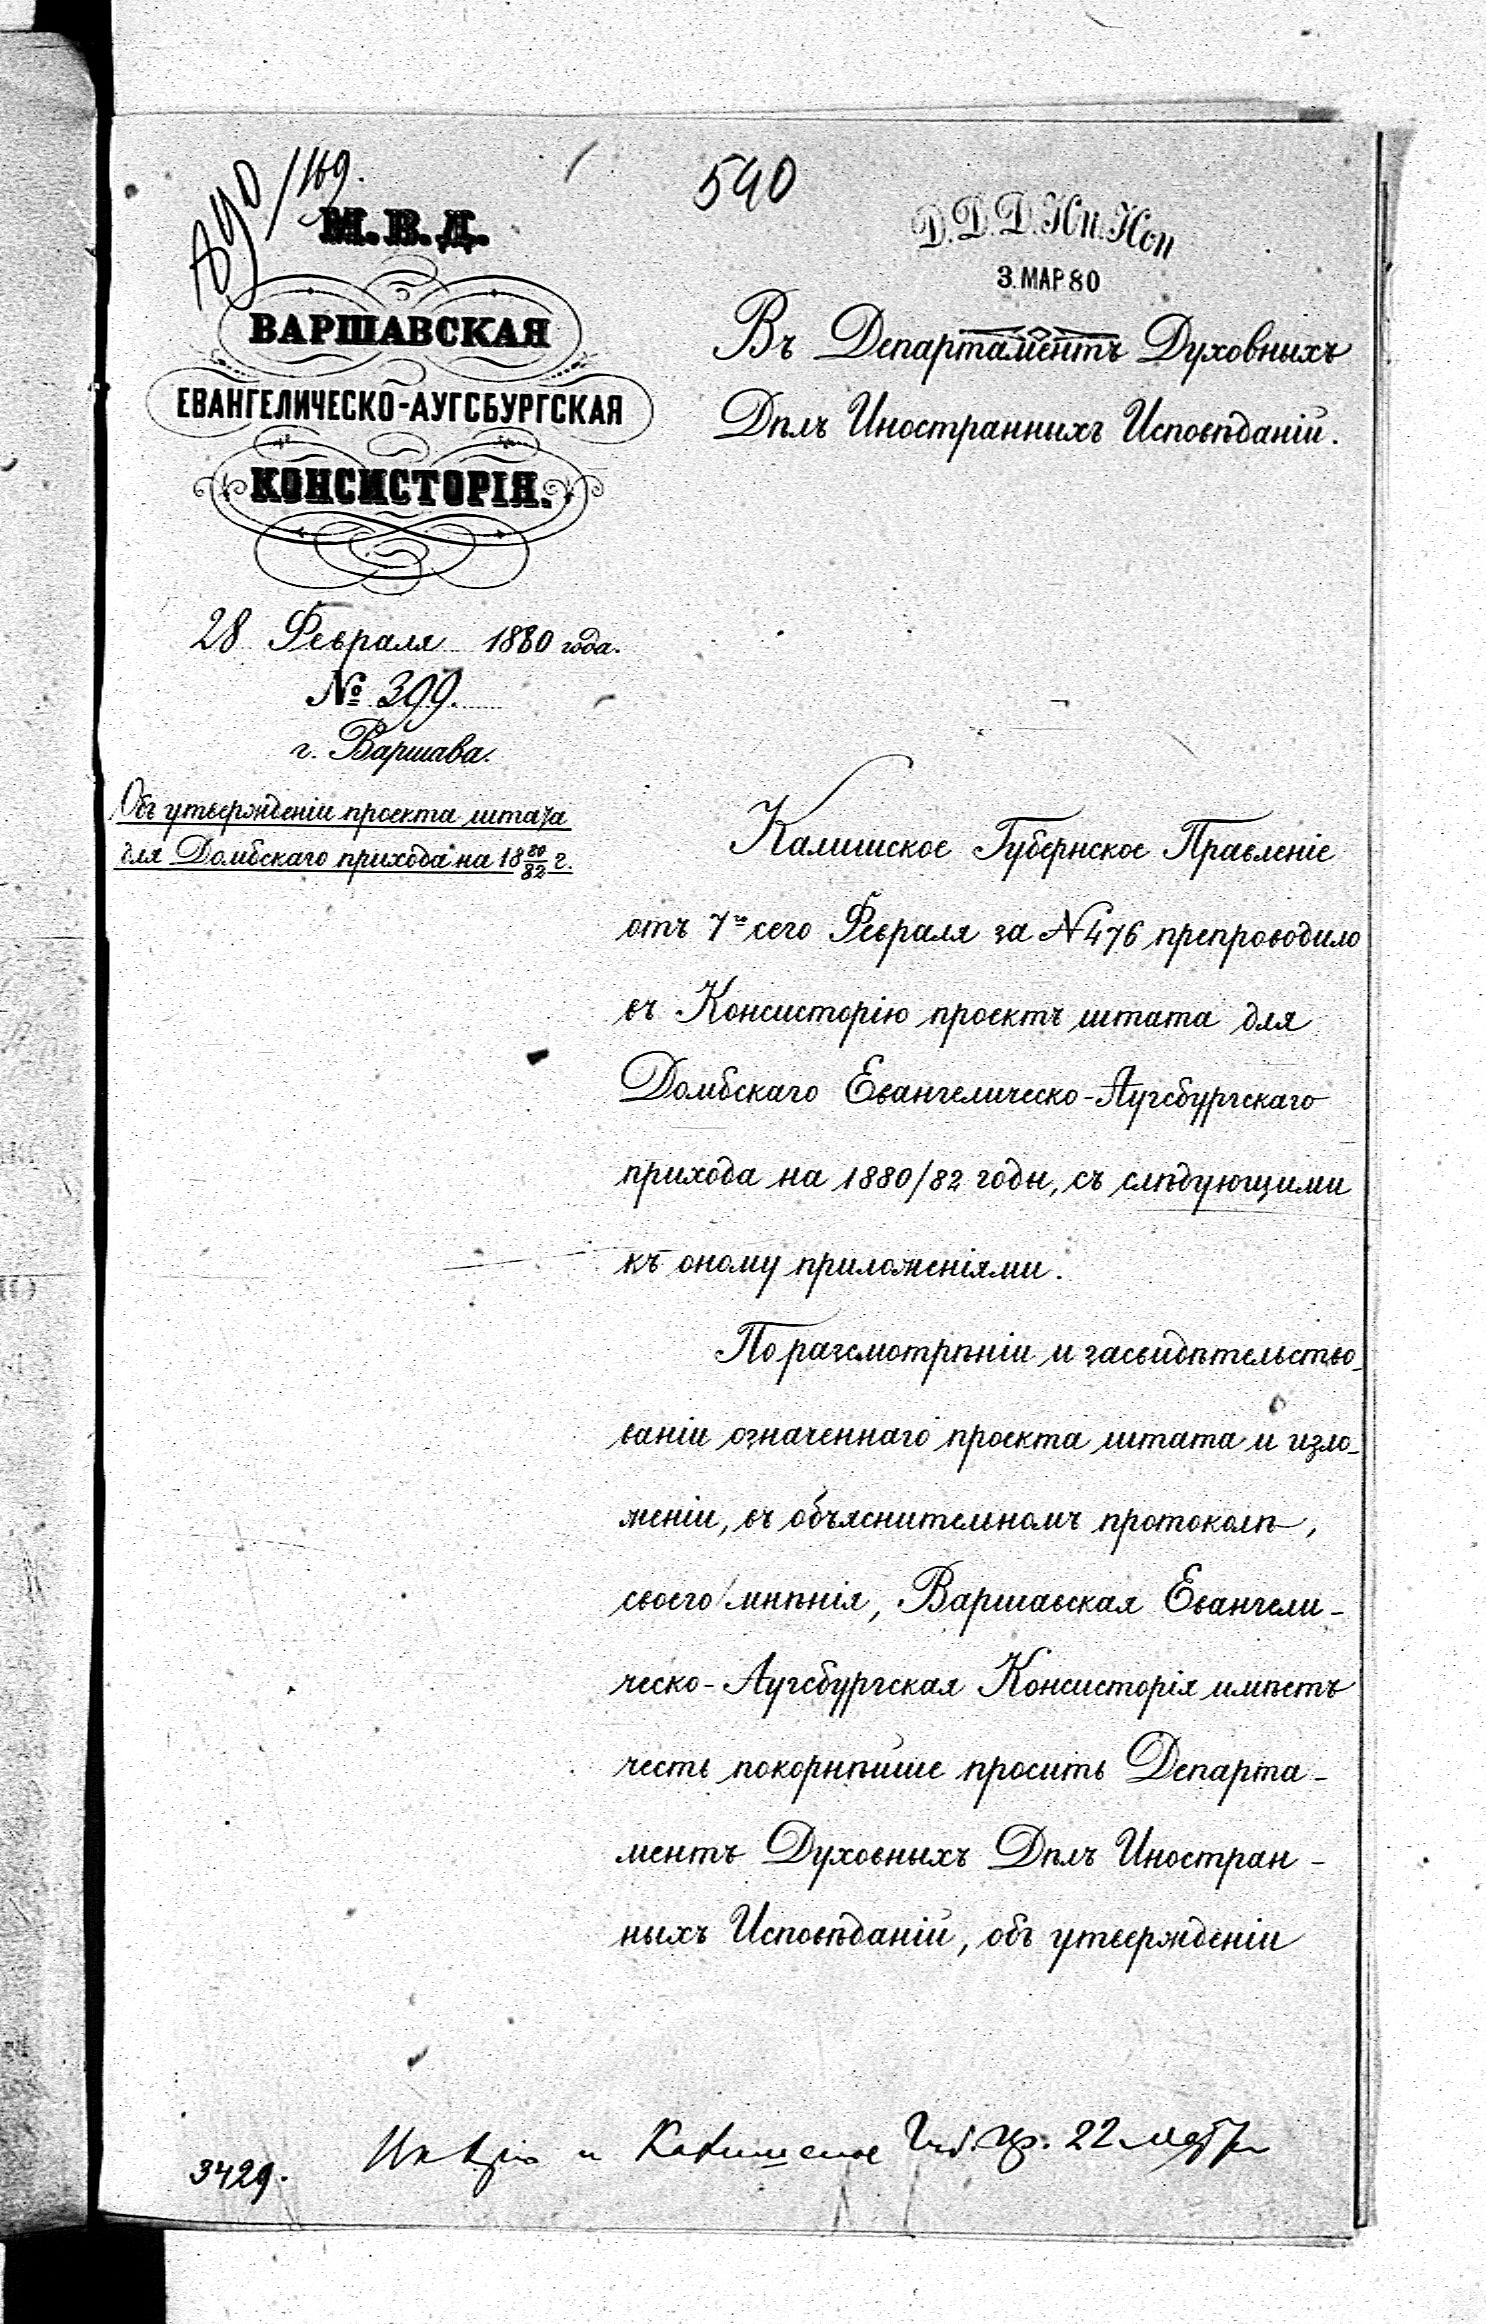 540
М.В.Д.
ВАРШАВСКАЯ
ЕВАНГЕЛИЧЕСКО-АУГСБУРГСКАЯ
КОНСИСТОРІЯ.
28 Февраля 1880 года.
№ 399.
г. Варшава.
Объ утвержденіи проекта штата
для Домбскаго прихода на 18 80/82 г.
Д. Д. Д. Ин. Исп
3. МАР 80
Въ Департаментъ Духовныхъ
Дѣлъ Иностранныхъ Исповѣданій.
Калишское Губернское Правленіе
отъ 7го сего Февраля за № 476 препроводило
въ Консисторію проектъ штата для
Домбскаго Евангелическо-Аугсбургскаго
прихода на 1880/82 годы, съ слѣдующими
къ оному приложеніями.
По разсмотрѣніи и засвидѣтельство-
ваніи означеннаго проекта штата и изло-
женіи, въ объяснительномъ протоколѣ,
своего мнѣнія, Варшавская Евангели-
ческо-Аугсбургская Консисторія имѣетъ
честь покорнѣйше просить Департа-
ментъ Духовныхъ Дѣлъ Иностран-
ныхъ Исповѣданій, объ утвержденіи
и Калишское Губ. Пр. 22 марта
3429.